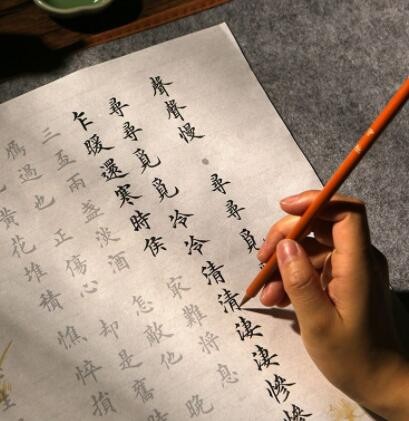 聲聲慢 尋尋覓
尋尋覓覓冷冷清清淒淒慘慘
乍暖還寒時候 難將息
三盃兩盞淡酒 怎敵他 晚
鴈過也 正傷心 却是舊時
黃花堆積 憔悴損